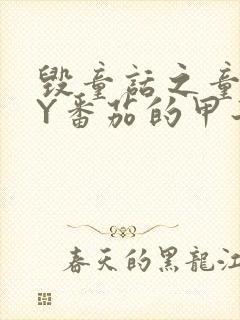 毁童话之童
Y番茄的甲
春天的黑龍江